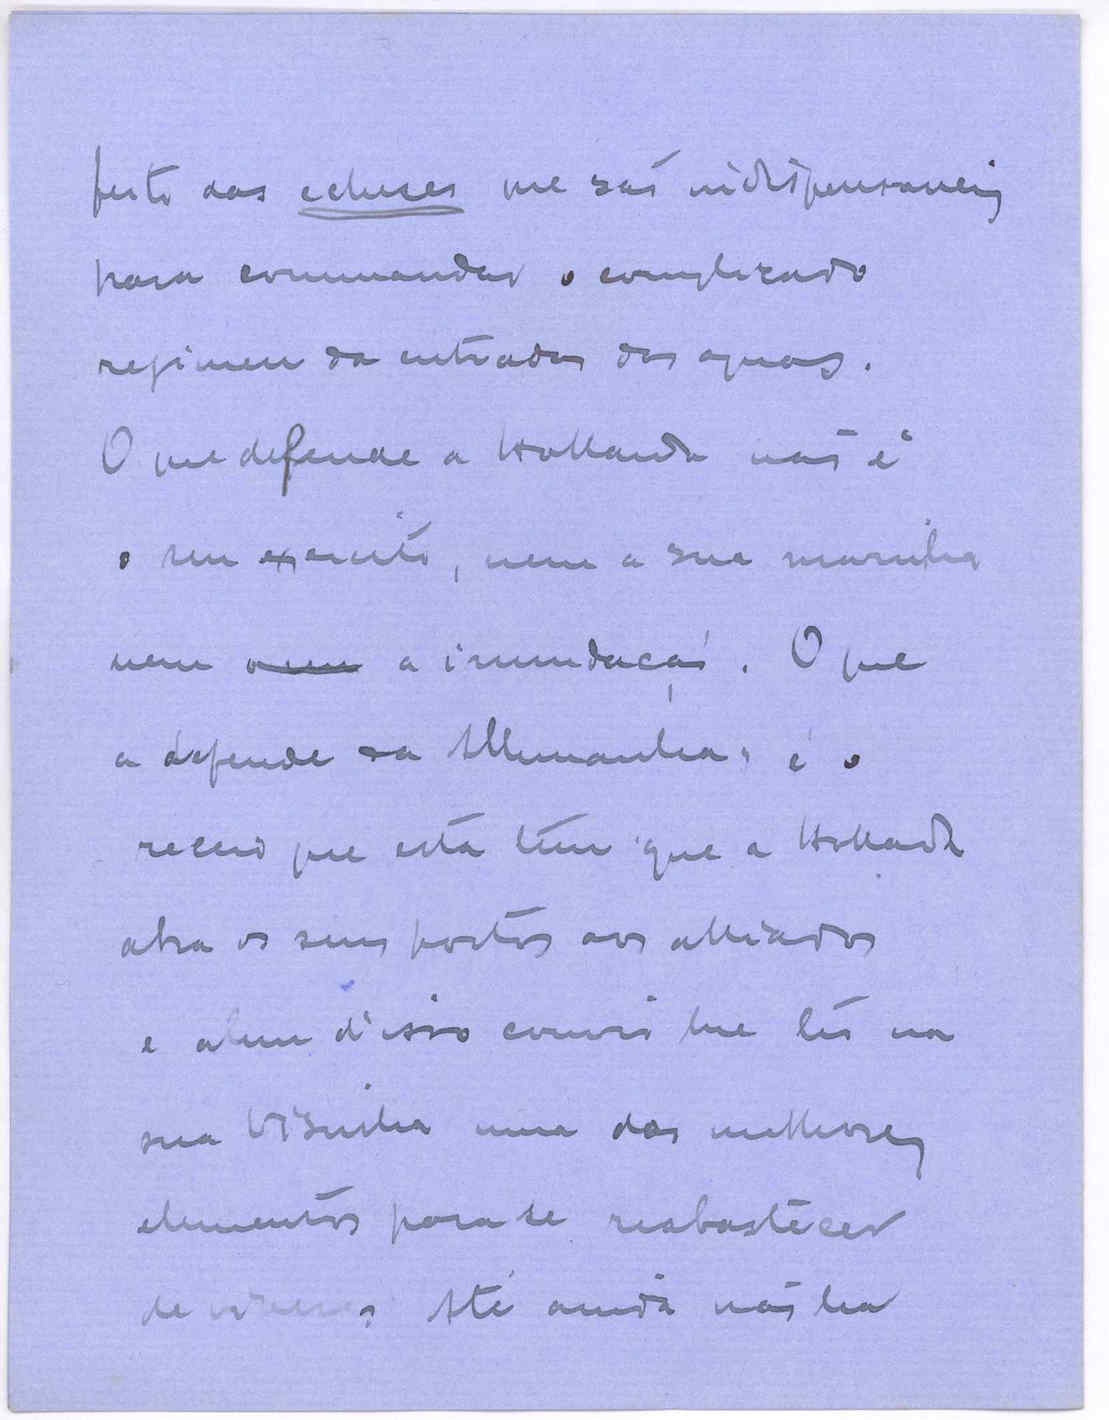 perto das ecluses que são indispensaveis
para commandar o complicado
regimen da entrada das aguas.
O que defende a Hollanda não é
o seu exercito, nem a sua marinha
nem a inundação. O que
a defende da Allemanha, é o
receio que esta tem que a Hollanda
abra os seus portos aos alliados
e alem d'isso convir lhe ter na
sua visinha uma das melhores
elementos para se reabastecer
de viveres. Até ainda não ha